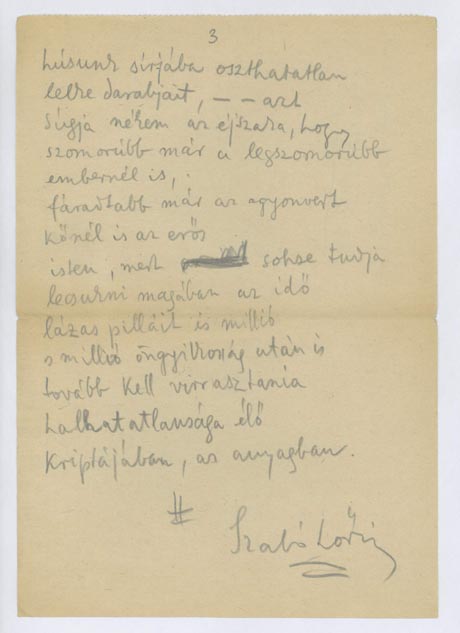 3
húsunk sírjába oszthatatlan
lelke darabjait, – – azt
súgja nékem az éjszaka, hogy
szomorúbb már a legszomorúbb
embernél is,
fáradtabb már az agyonvert
kőnél is az erős
isten, mert sohse tudja
lecsukni magában az idő
lázas pilláit és millió
s millió öngyilkosság után is
tovább kell virrasztania
halhatatlansága élő
kriptájában, az anyagban.
#
Szabó Lőrinc